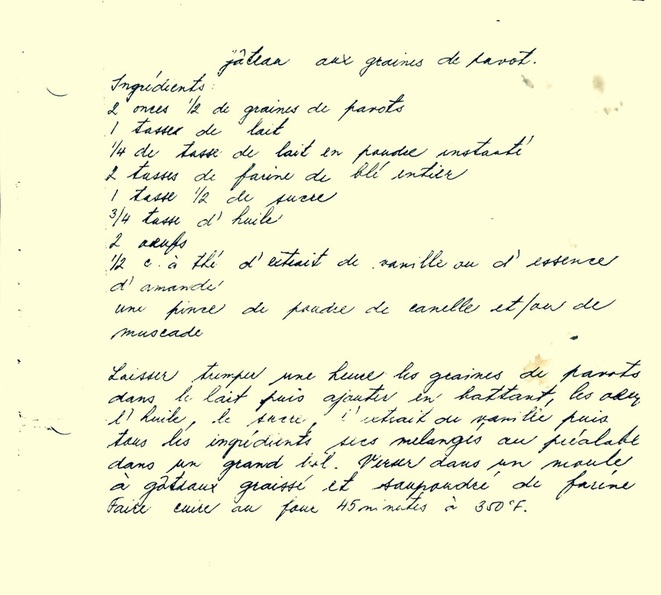 gâteau aux graines de pavot.
Ingrédients:
2 onces 1/2 de graines de pavots
1 tasse de lait
1/4 de tasse de lait en poudre instanté
2 tasses de farine de blé entier
1 tasse 1/2 de sucre
3/4 tasse d'huile
2 oeufs
1/2 c. à thé d'extrait de vanille ou d'essence
d'amande
une pince de poudre de canelle et/ou de
muscade
Laisser tremper une heure les graines de pavots
dans le lait puis ajouter en battant, les oeufs
l'huile, le sucre, l'extrait de vanille puis
tous les ingrédients secs mélangés au préalabe
dans un grand bol. Verser dans un moule
à gâteaux graissé et saupoudré de farine
Faire cuire au four 45 minutes à 350°F.